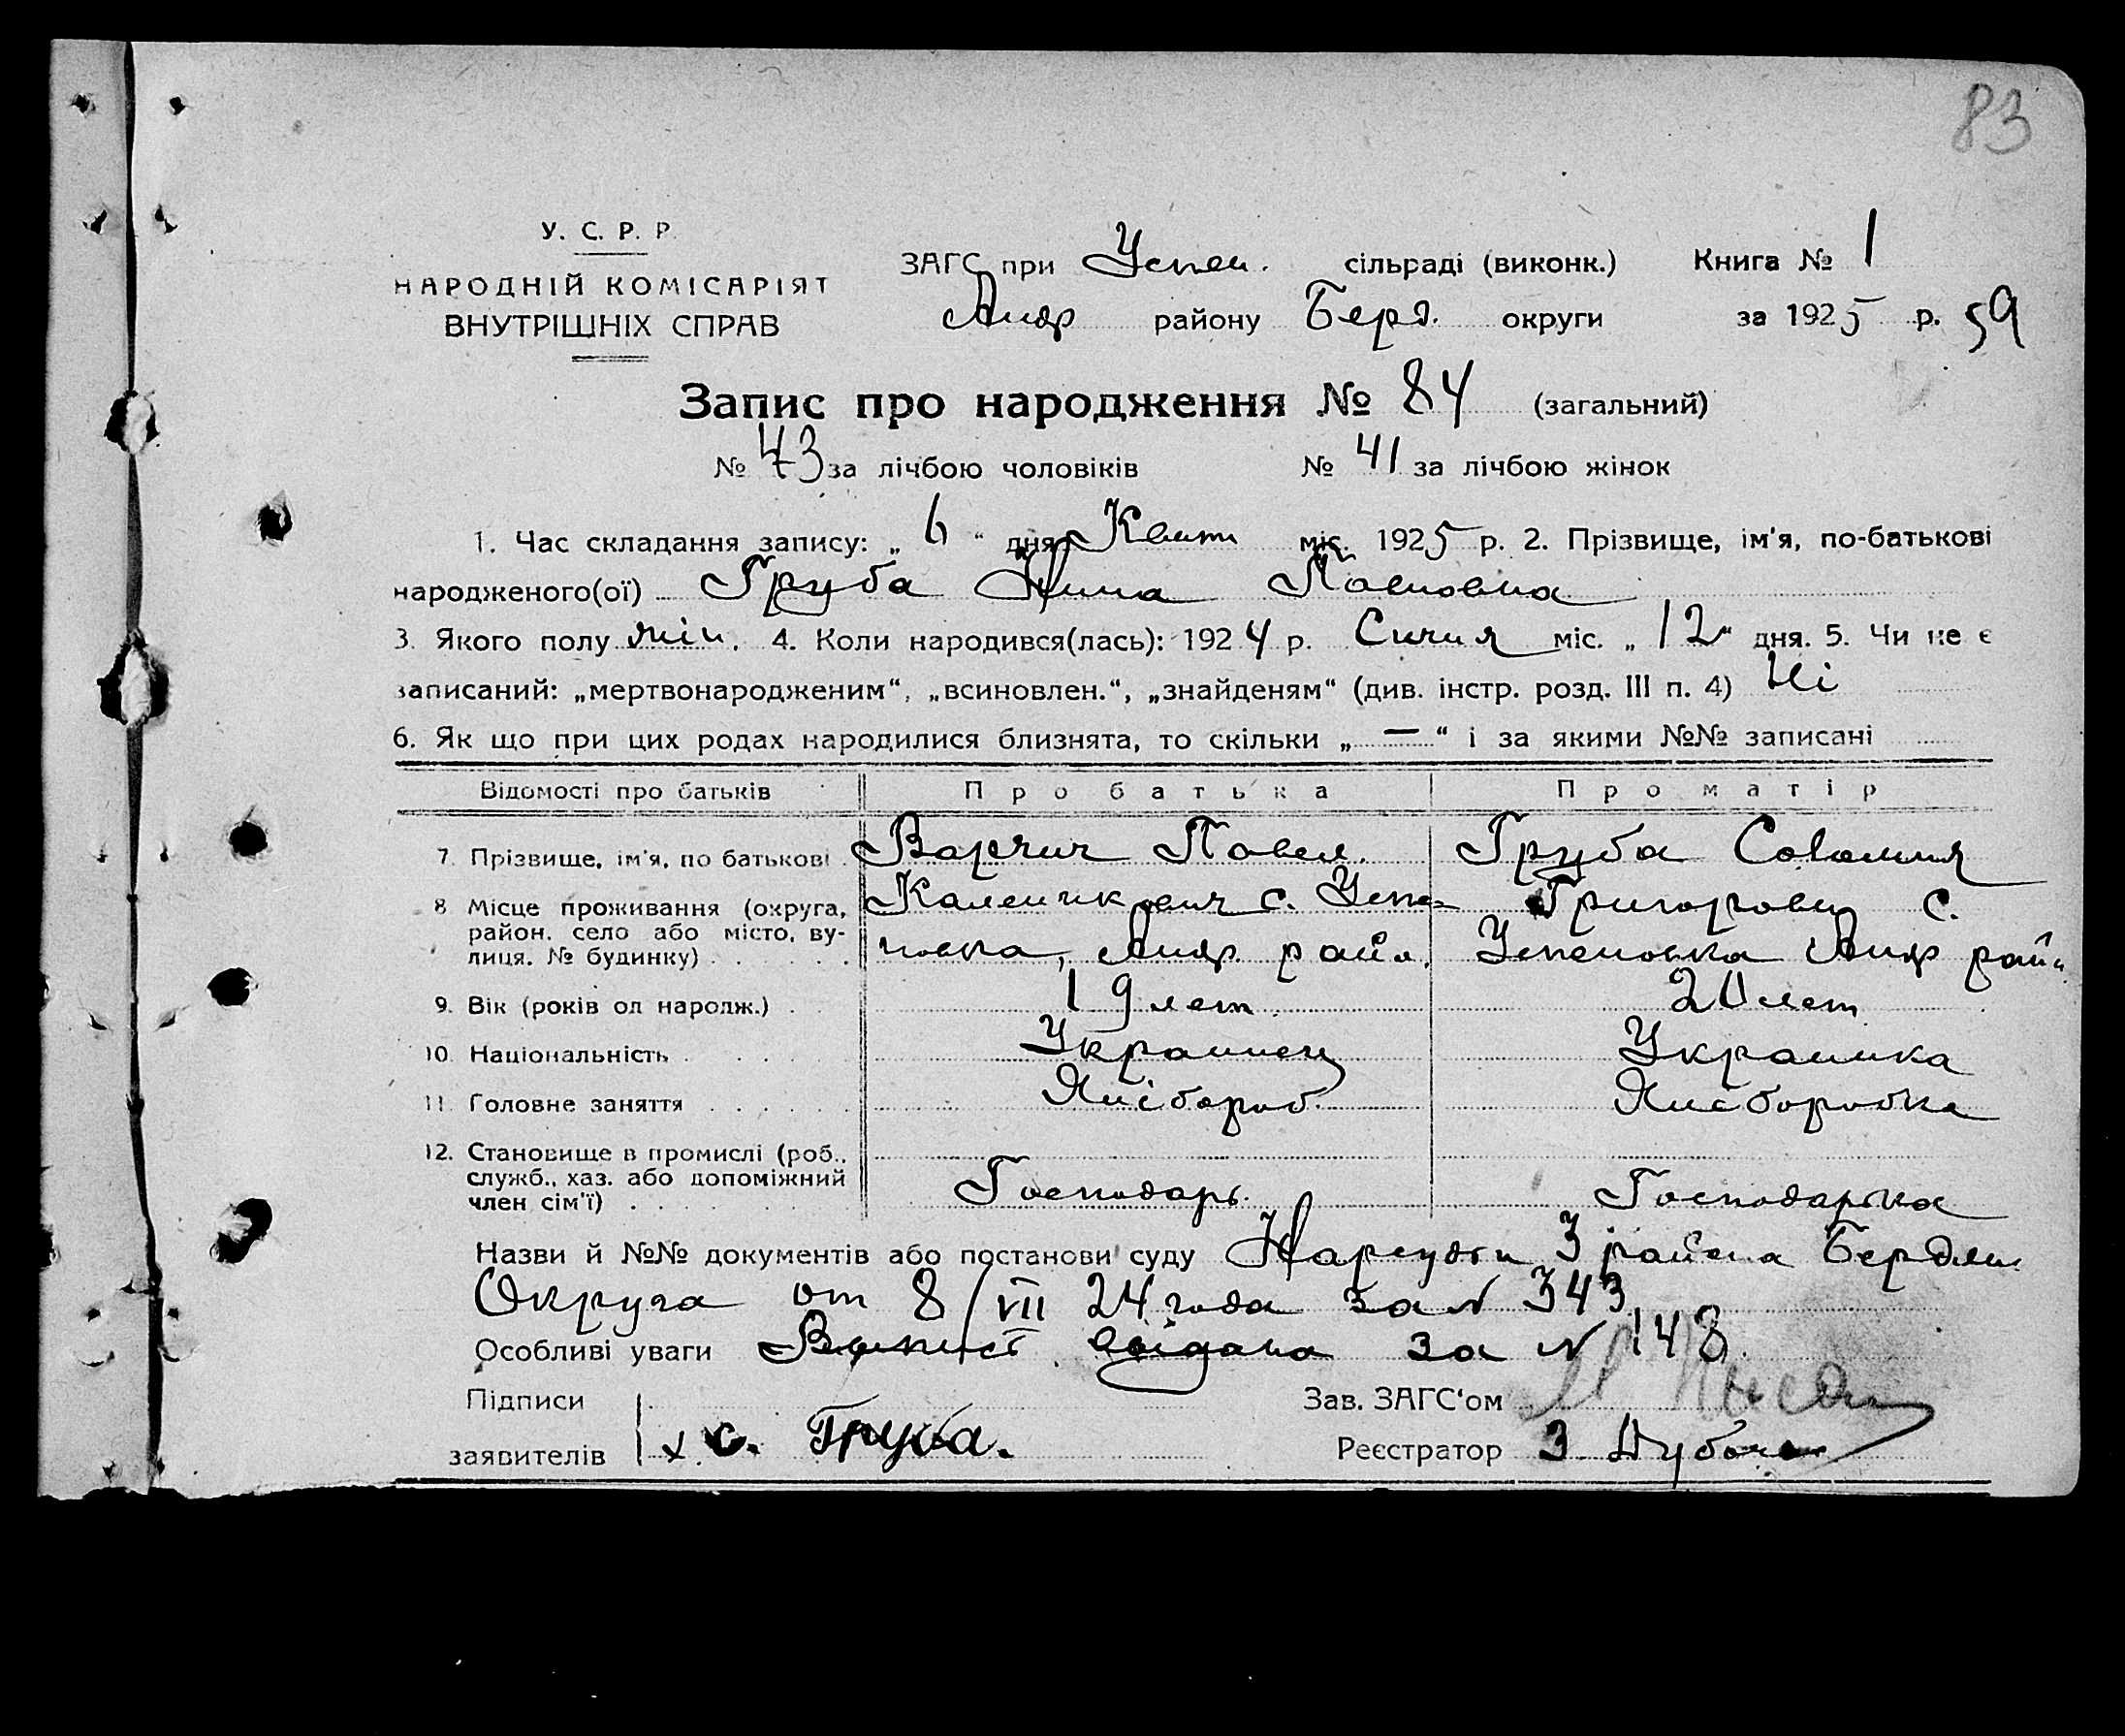 83
У. С. Р. Р.
НАРОДНІЙ КОМІСАРІЯТ
ВНУТРІШНІХ СПРАВ
ЗАГС при Успен. сільраді (виконк.) Книга № 1
Андр району Берд. округи за 1925 р. 59
Запис про народження № 84 (загальний)
№ 43 за лічбою чоловіків № 41 за лічбою жінок
1. Час складання запису: „ 6 “ дня Квітн міс. 1925 р. 2. Прізвище, ім'я, по-батькові
народженого(ої) Груба Нина Павловна
3. Якого полу жін. 4. Коли народився(лась): 1924 р. Січня міс. „ 12 “ дня. 5. Чи не є
записаний: „мертвонародженим“, „всиновлен.“, „знайденям“ (див. інстр. розд. III п. 4) Ні
6. Як що при цих родах народилися близнята, то скільки „ — “ і за якими №№ записані
Відомості про батьків Про батька Про матір
7. Прізвище, ім'я, по батькові Варчич Павел Груба Соломия
8 Місце проживання (округа, район, село або місто, вулиця, № будинку)
с. Успеновка, Андр. райо. Григоровн с. Успеновка Андр райо
9. Вік (років од народж.) 19 лет 20 лет
10. Національність Украинец Украинка
11. Головне заняття Хлібороб. Хлеборобка
12. Становище в промислі (роб., служб., хаз. або допоміжний член сім'ї) Господарь. Господарька
Назви й №№ документів або постанови суду Нарсудби 3 района Бердян
Округа от 8/VII 24 года за N 343
Особливі уваги Випись видана за N 148.
Підписи
заявителів х С. Груба.
Зав. ЗАГС‘ом
Реєстратор З.